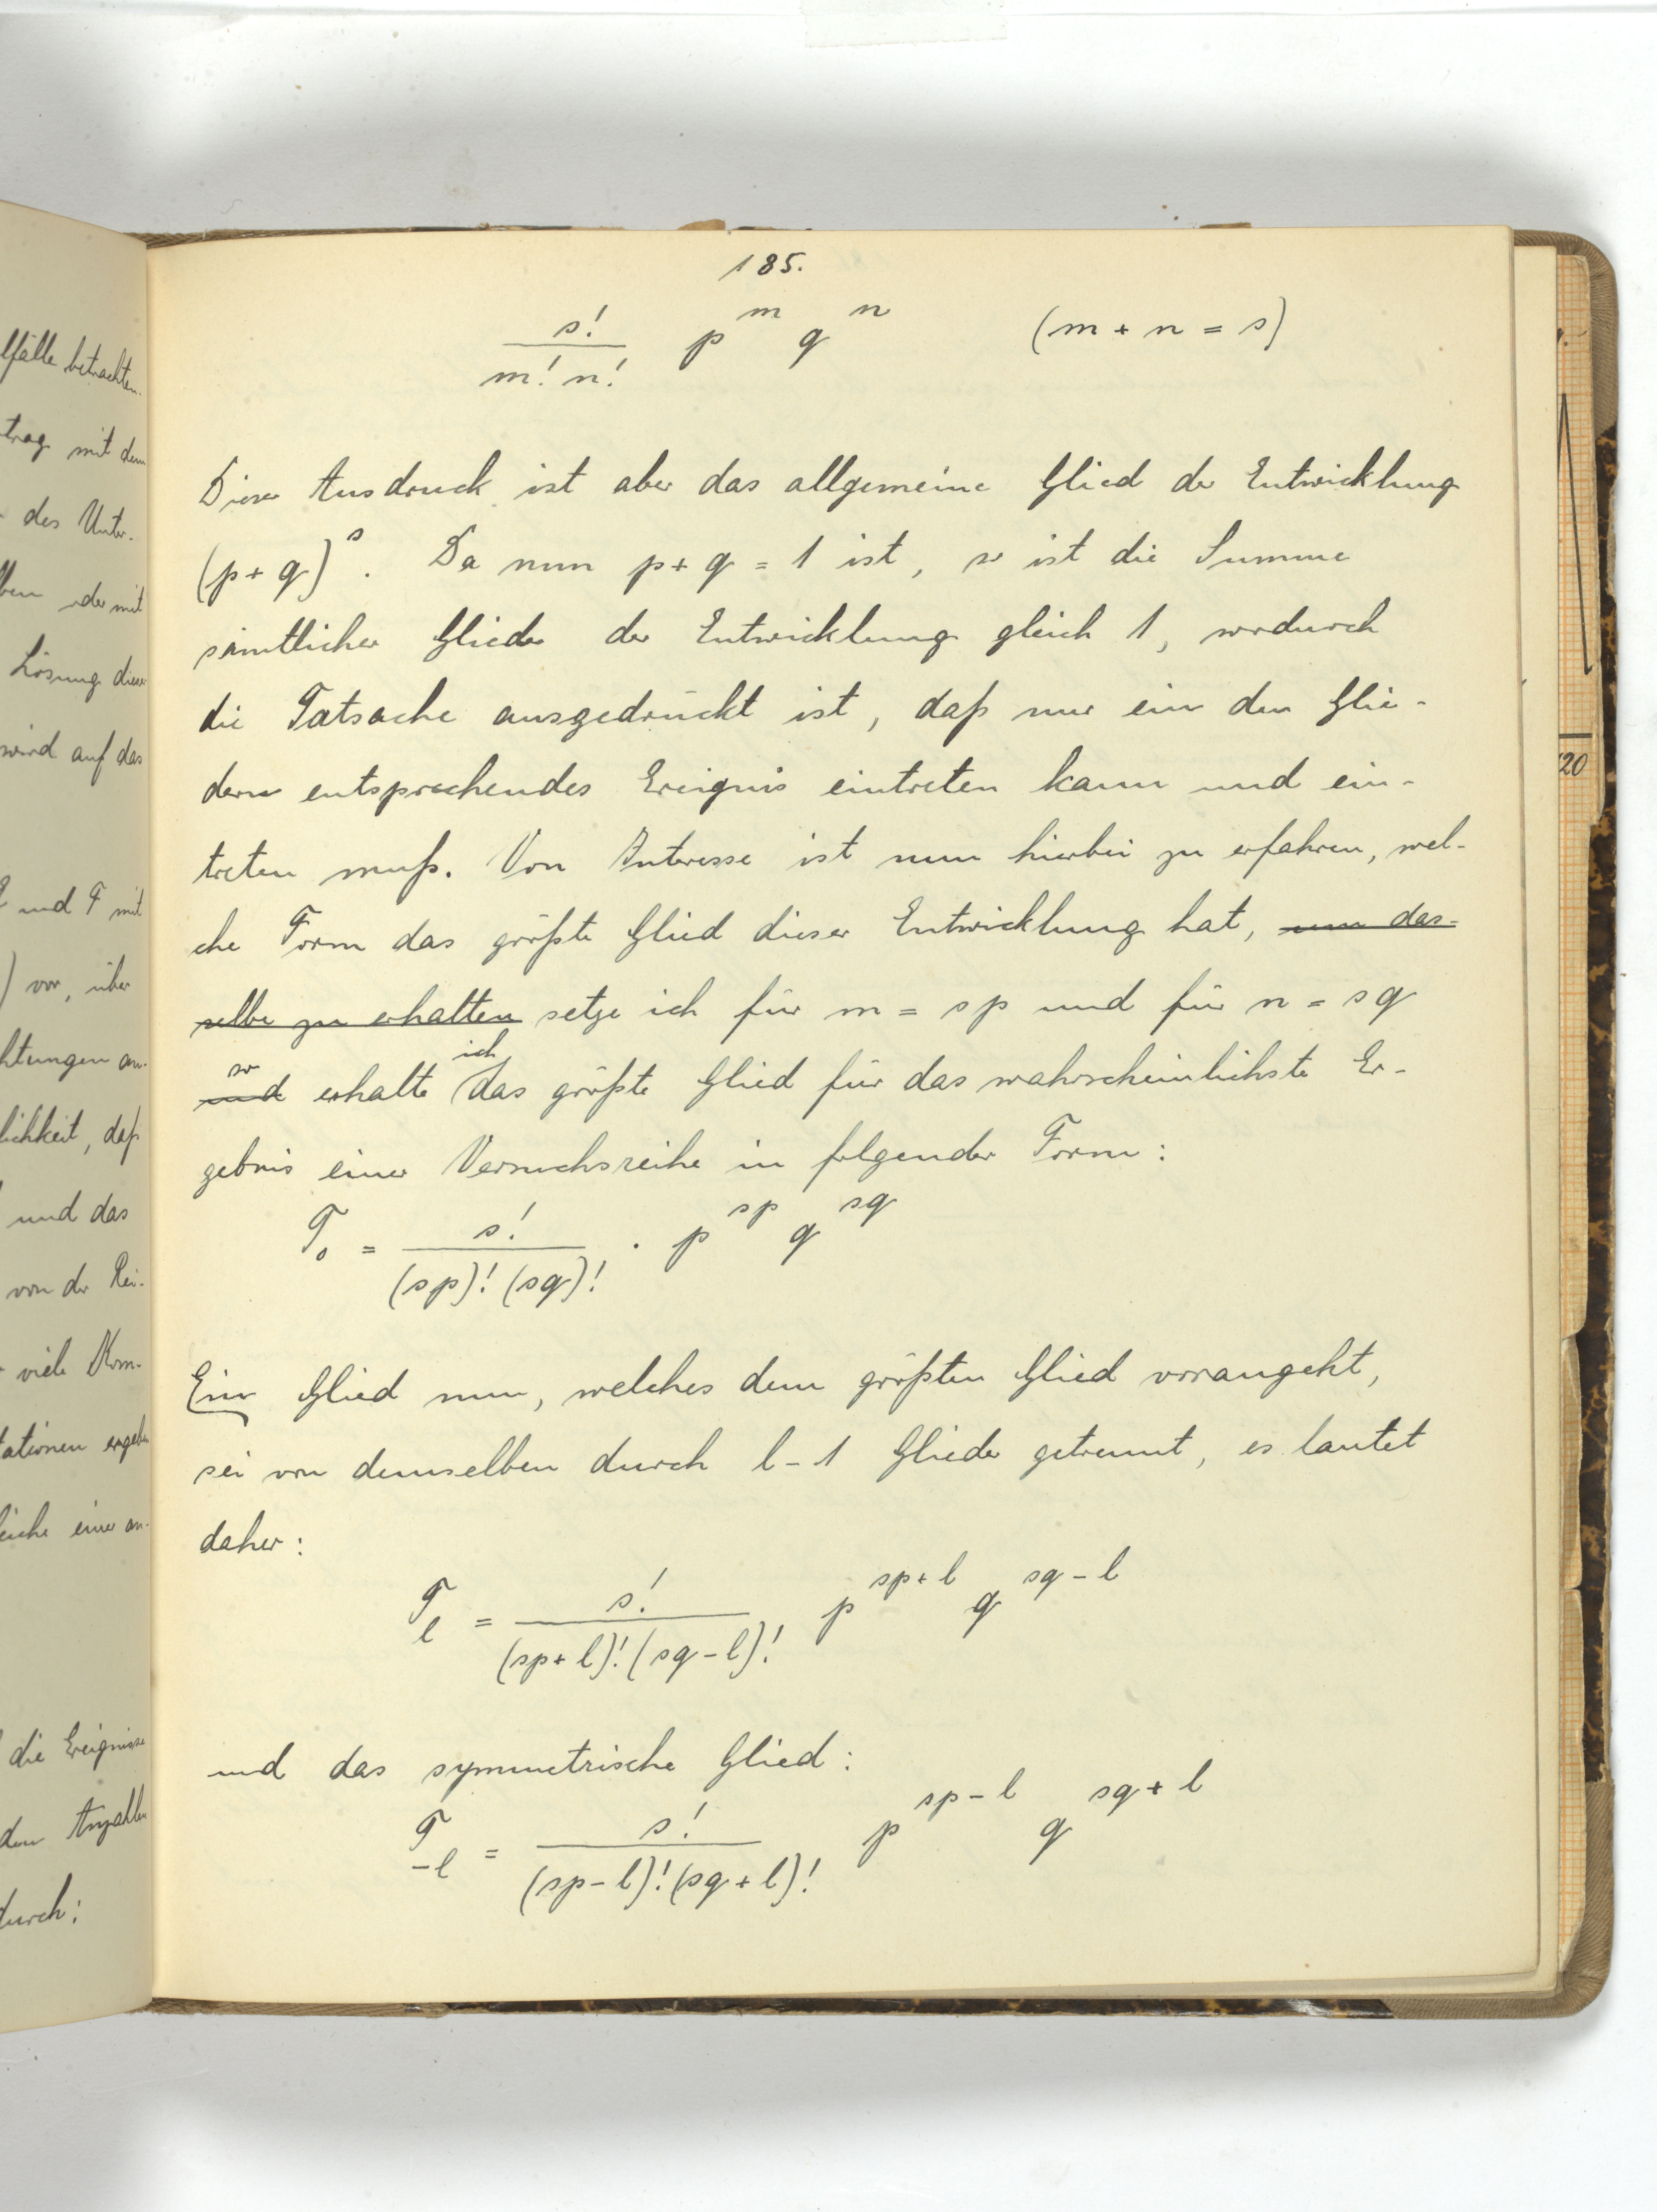 lfälle betrachten.
trag mit dem
des Unter-
ben oder mit
Lösung dieser
wird auf das
und F mit
) vor, über
htungen an-
lichkeit, daß
und das
von der Rei-
viele Kom-
tationen ergeben
eiche einer an-
die Ereignisse
den Anzahlen
durch:
185.
s! / m! n! p^m q^n (m + n = s)
Dieser Ausdruck ist aber das allgemeine Glied der Entwicklung
(p + q)^s. Da nun p + q = 1 ist, so ist die Summe
sämtlicher Glieder der Entwicklung gleich 1, wodurch
die Tatsache ausgedrückt ist, daß nur ein den Glie-
dern entsprechendes Ereignis eintreten kann und ein-
treten muß. Von Interesse ist nun hierbei zu erfahren, wel-
che Form das größte Glied dieser Entwicklung hat, um das-
selbe zu erhalten setze ich für m = sp und für n = sq
so ich
und erhalte das größte Glied für das wahrscheinlichste Er-
gebnis einer Versuchsreihe in folgender Form:
T_0 = s! / (sp)! (sq)! · p^sp q^sq
Ein Glied nun, welches dem größten Glied vorangeht,
sei von demselben durch l - 1 Glieder getrennt, es lautet
daher:
T_l = s! / (sp + l)! (sq - l)! p^(sp + l) q^(sq - l)
und das symmetrische Glied:
T_-l = s! / (sp - l)! (sq + l)! p^(sp - l) q^(sq + l)
120